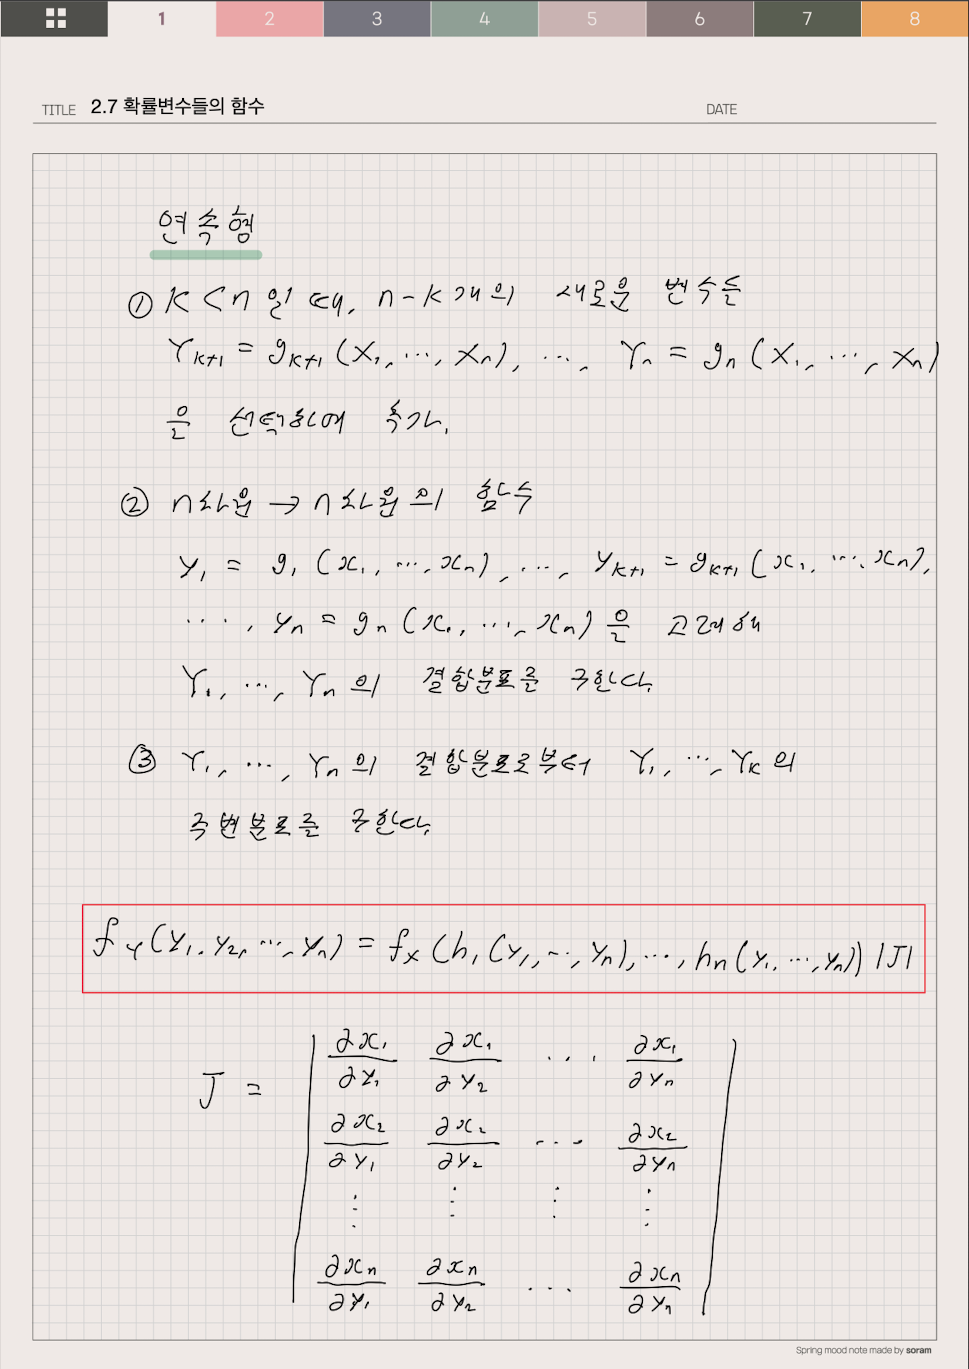 1 2 3 4 5 6 7 8
TITLE 2.7 확률변수들의 함수 DATE
연속형
① K<n 일 때, n-k개의 새로운 변수들
Y_{k+1} = g_{k+1}(X_1, ..., X_n), ..., Y_n = g_n(X_1, ..., X_n)
을 선택하여 추가.
② n차원 → n차원의 함수
y_1 = g_1(x_1, ..., x_n), ..., y_{k+1} = g_{k+1}(x_1, ..., x_n),
..., y_n = g_n(x_1, ..., x_n)을 고려해
Y_1, ..., Y_n의 결합분포를 구한다.
③ Y_1, ..., Y_n의 결합분포로부터 Y_1, ..., Y_k의
주변분포를 구한다.
f_Y(y_1, y_2, ..., y_n) = f_X(h_1(y_1, ..., y_n), ..., h_n(y_1, ..., y_n)) |J|
J = | ∂x_1/∂y_1 ∂x_1/∂y_2 ... ∂x_1/∂y_n |
∂x_2/∂y_1 ∂x_2/∂y_2 ... ∂x_2/∂y_n
⋮ ⋮ ⋮ ⋮
∂x_n/∂y_1 ∂x_n/∂y_2 ... ∂x_n/∂y_n
Spring mood note made by soram